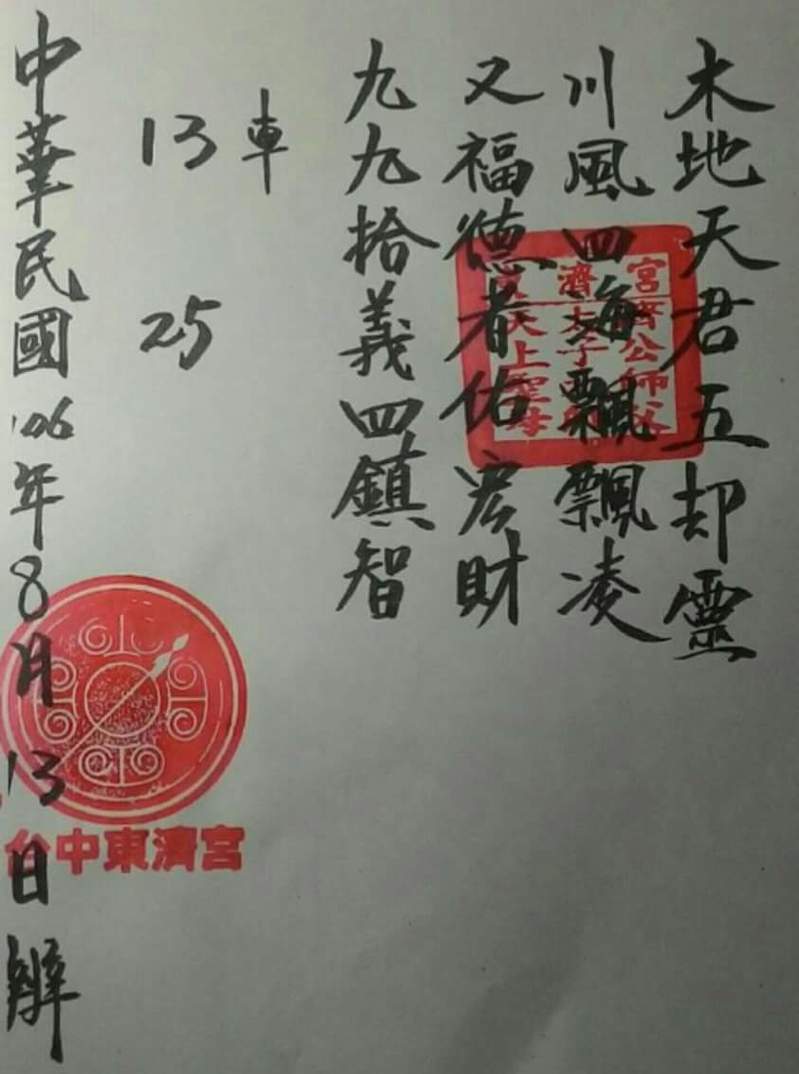 木地天君五却靈
川風四海飄飄凌
又福德者佑宏財
九九拾義四鎮智
車
13 25
中華民國106年8月13日辦
宮 濟
濟公師父
太子
天上聖母
台中東濟宮